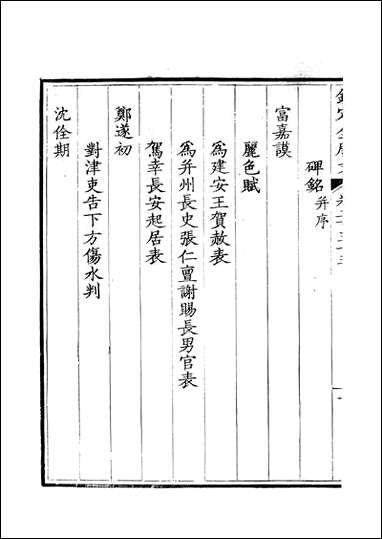 碑銘并序
富嘉謨
麗色賦
為建安王賀赦表
為并州長史張仁亶謝賜長男官表
駕幸長安起居表
鄭遂初
對津吏告下方傷水判
沈佺期